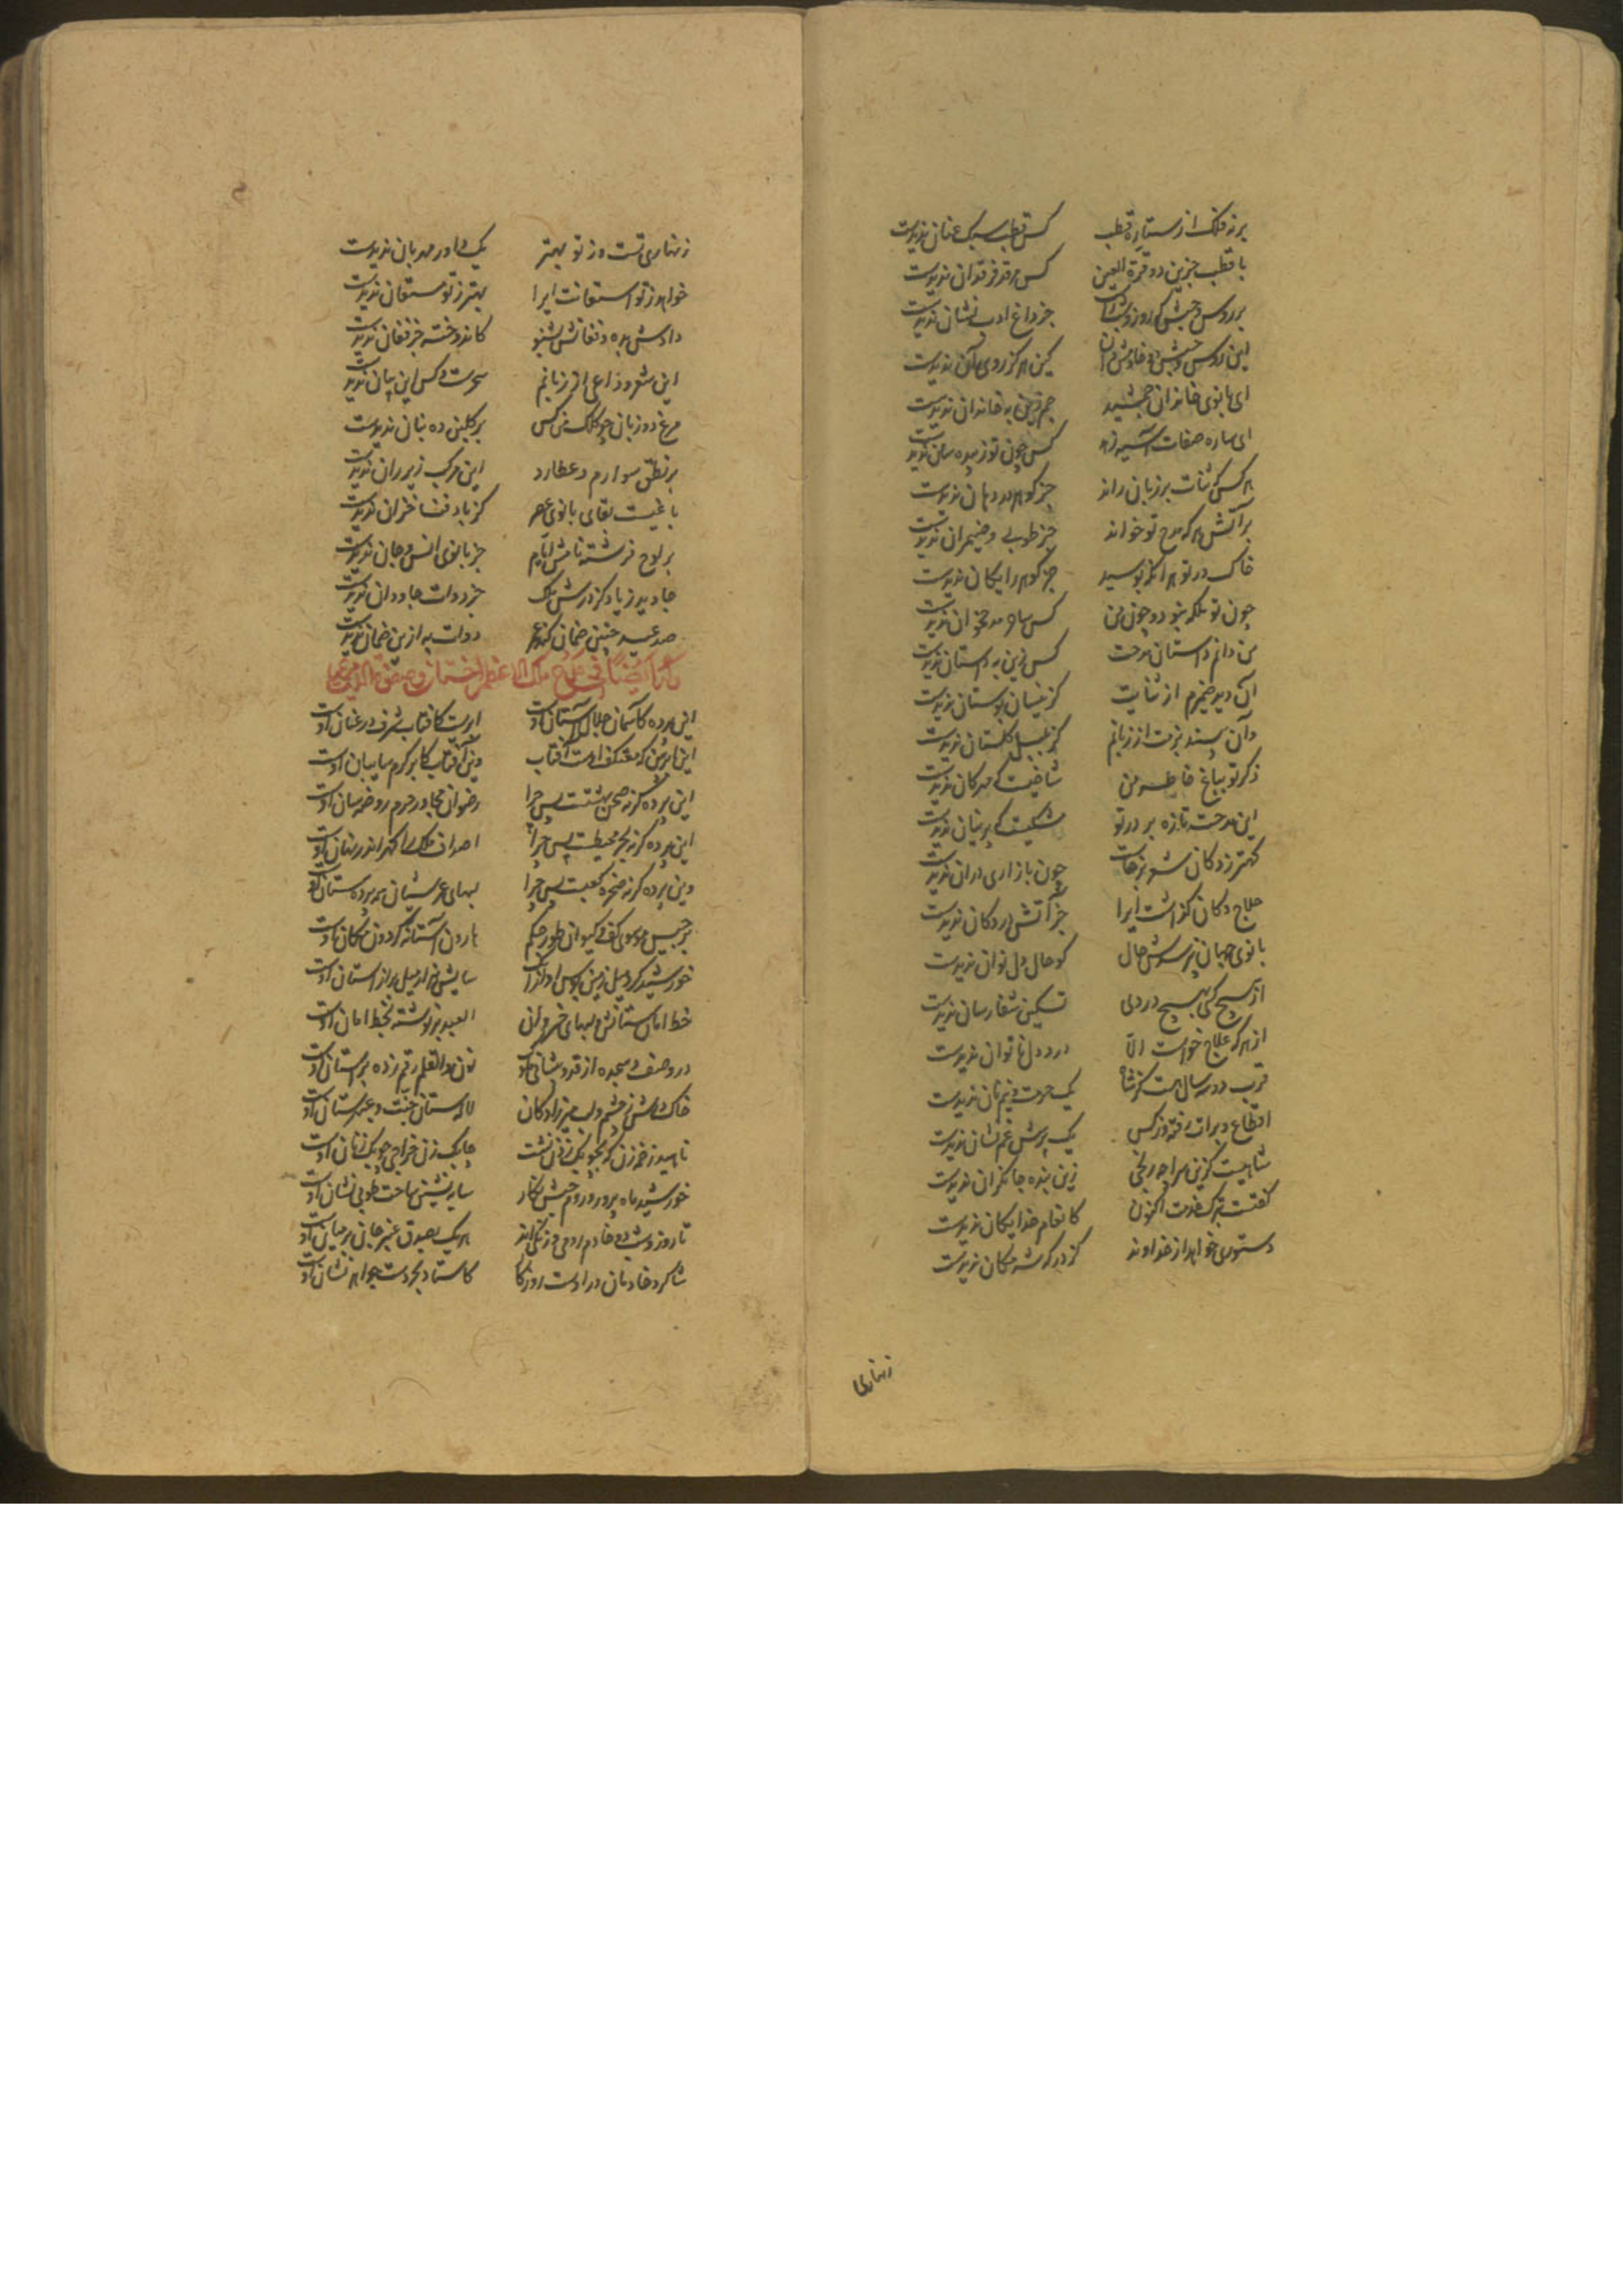 بر نه فلک از ستاره قطب کس قطب سبک عنان ندیدست
با قطب جزین دو قرة العین کس مرقد فرقدان ندیدست
بر روس و حبش که روز و شب راست جز داغ ادب نشان ندیدست
این روس و حبش دو خادمش دان کین هرگز روی آن ندیدست
ای بانوی خاندان جمشید جم زین به خاندان ندیدست
ای ساره صفات آسیه زهد کس چون تو زبیده سان ندیدست
هر کس که ثنات بر زبان راند جز گوهر در دهان ندیدست
بر آتش هر که مدح تو خواند جز طوبی و ضیمران ندیدست
خاک در تو هر آنکه بوسید جز گوهر رایگان ندیدست
چون تو ملکه نبود و چون من کس ساحر مدح خوان ندیدست
من دانم داستان مدحت کس زین به داستان ندیدست
آن دید ضمیرم از ثنایت کز نیسان بوستان ندیدست
وآن بیند بزمت از زبانم کز بلبل گلستان ندیدست
ذکر تو بباغ خاطر من شاخیست که مهرگان ندیدست
این مدحت تازه بر در تو مشکیست که پرنیان ندیدست
کهتر ز دکان شعر برخاست چون بازاری در آن ندیدست
حلاج دکان گذاشت ایرا جز آتش در دکان ندیدست
بانوی جهان نپرسدش حال کو حال دل نوان ندیدست
از هیچ کسی بهیچ دردی تسکین شفارسان ندیدست
از هر که علاج خواست الا درد دل ناتوان ندیدست
قرب دو سال هست کز شاه یک حرمت و نیم نان ندیدست
اقطاع و برات رفت و از کس یک پرسش غم نشان ندیدست
شاهیست گزین سرا چه رنجی زین بنده جانگران ندیدست
گفتست بترک خدمت اکنون کانعام خدایگان ندیدست
دستوری خواهد از خداوند کز درگه شه مکان ندیدست
زنهاری
زنهاری تست وز تو بهتر یک داور مهربان ندیدست
خواهد ز تو استعانت ایرا بهتر ز تو مستعان ندیدست
دادش بده و فغانش بشنو کاندوخته جز فغان ندیدست
این شعر وداعی از زبانم سحرست و کس این بیان ندیدست
مرغ دو زبان چو کلک من کس بر گلبن ده بنان ندیدست
بر نطق سوارم و عطارد این مرکب زیر ران ندیدست
باغیست بقای بانوی عصر کز باد فنا خزان ندیدست
بر لوح فرشته نامش ایام جز بانوی انس و جان ندیدست
جاوید زیاد کز درش ملک جز دولت جاودان ندیدست
صد عید چنین ضمان کند عمر دولت به ازین ضمان ندیدست
این پرده کآسمان جلال آستان اوست ابریست کآفتاب شرف در عنان اوست
این ابر بین که معتکف اوست آفتاب وین آفتاب کابر کرم سایبان اوست
این پرده گر نه صحن بهشتست پس چرا رضوان مجاور حرم روضه سان اوست
این پرده گر نه بحر محیطست پس چرا اصداف ملک را گهر اندر نهان اوست
وین پرده گر نه صخره کعبست پس چرا لبهای عرشیان همه پرده ستان اوست
برجیس موسوی کف و کیوان طور حکم هارون آستانه گردون مکان اوست
خورشید کرد میل زمین بوس او از آنک سایش هزار میل براز آستان اوست
خط امان ستانش و لبهای خسروان العبد برنوشته بخط امان اوست
در وصف سجده از قد و پیشانی ملوک نون والقلم رقم زده بر آستان اوست
خاک درش ز چشم و لب میرزادگان لاله ستان جنت و عبهرستان اوست
ناهید زخمه زن گه چوبک زنی نشست چابک زن خراجی چوبک زنان اوست
خورشید ماه پرور و روم حبش نگار سایه نشین ساحت طوبی نشان اوست
تا روز و شب دو خادم رومی و زنگی اند هر یک بصدق عنبر جان بر میان اوست
شاگرد خادمان در اوست روزگار کاستاد بحر دست جواهر نشان اوست